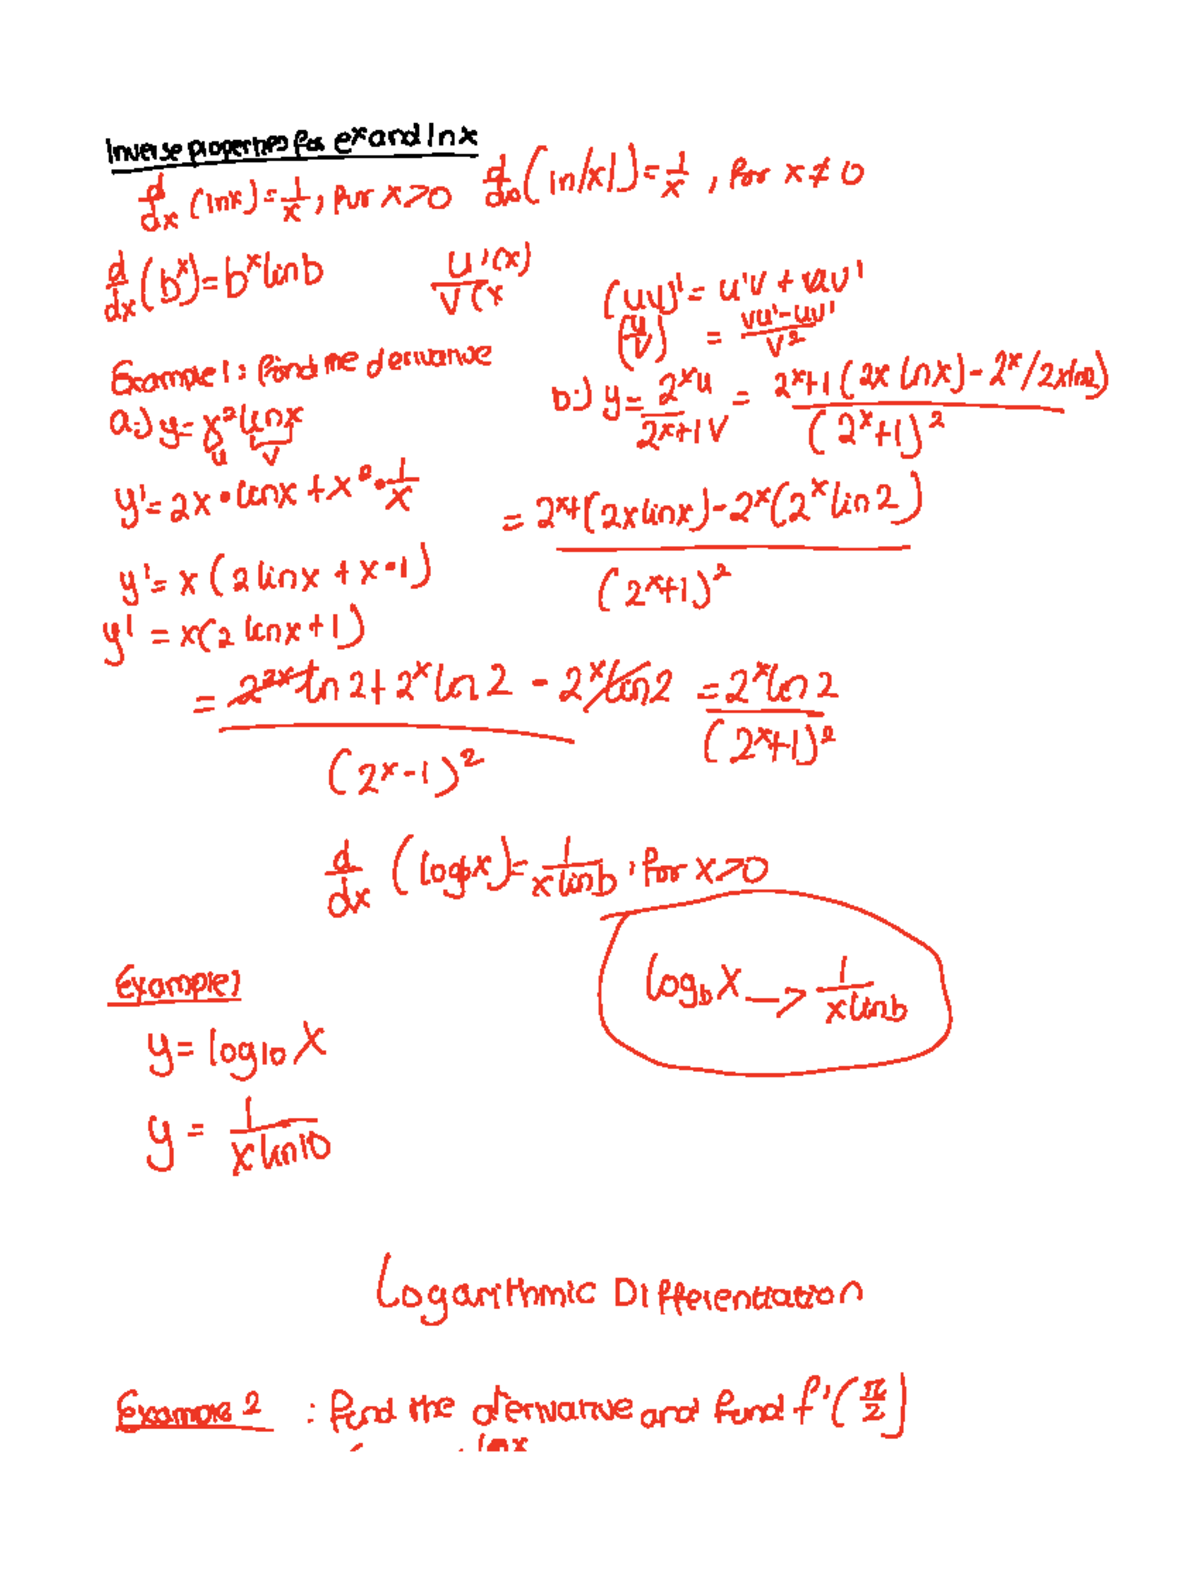 Inverse properties for e^x and ln x
d/dx (lnx) = 1/x, for x>0    d/dx (ln|x|) = 1/x, for x ≠ 0
d/dx (b^x) = b^x ln b    u'(x)/v(x
(uv)' = u'v + uv'
(u/v) = vu'-uv'/v^2
Example 1: Find the derivative
a.) y = x^2 lnx
u v
b.) y = 2^x u / 2^x+1 v = 2^x+1 (2x lnx) - 2^x/2xln2) / (2^x+1)^2
y' = 2x • lnx + x^2 • 1/x
= 2^x+(2x lnx) - 2^x(2^x ln 2) / (2^x+1)^2
y' = x (2 lnx + x•1)
y' = x(2 lnx+1)
= 2^2x ln 2 + 2^x ln 2 - 2^x ln 2 / (2^x-1)^2 = 2^x ln 2 / (2^x+1)^2
d/dx (log_b x) = 1/x ln b, for x>0
log_b x → 1/x ln b
Example 1
y = log10 x
y = 1/x ln 10
Logarithmic Differentiation
Example 2 : Find the derivative and find f'(π/2)